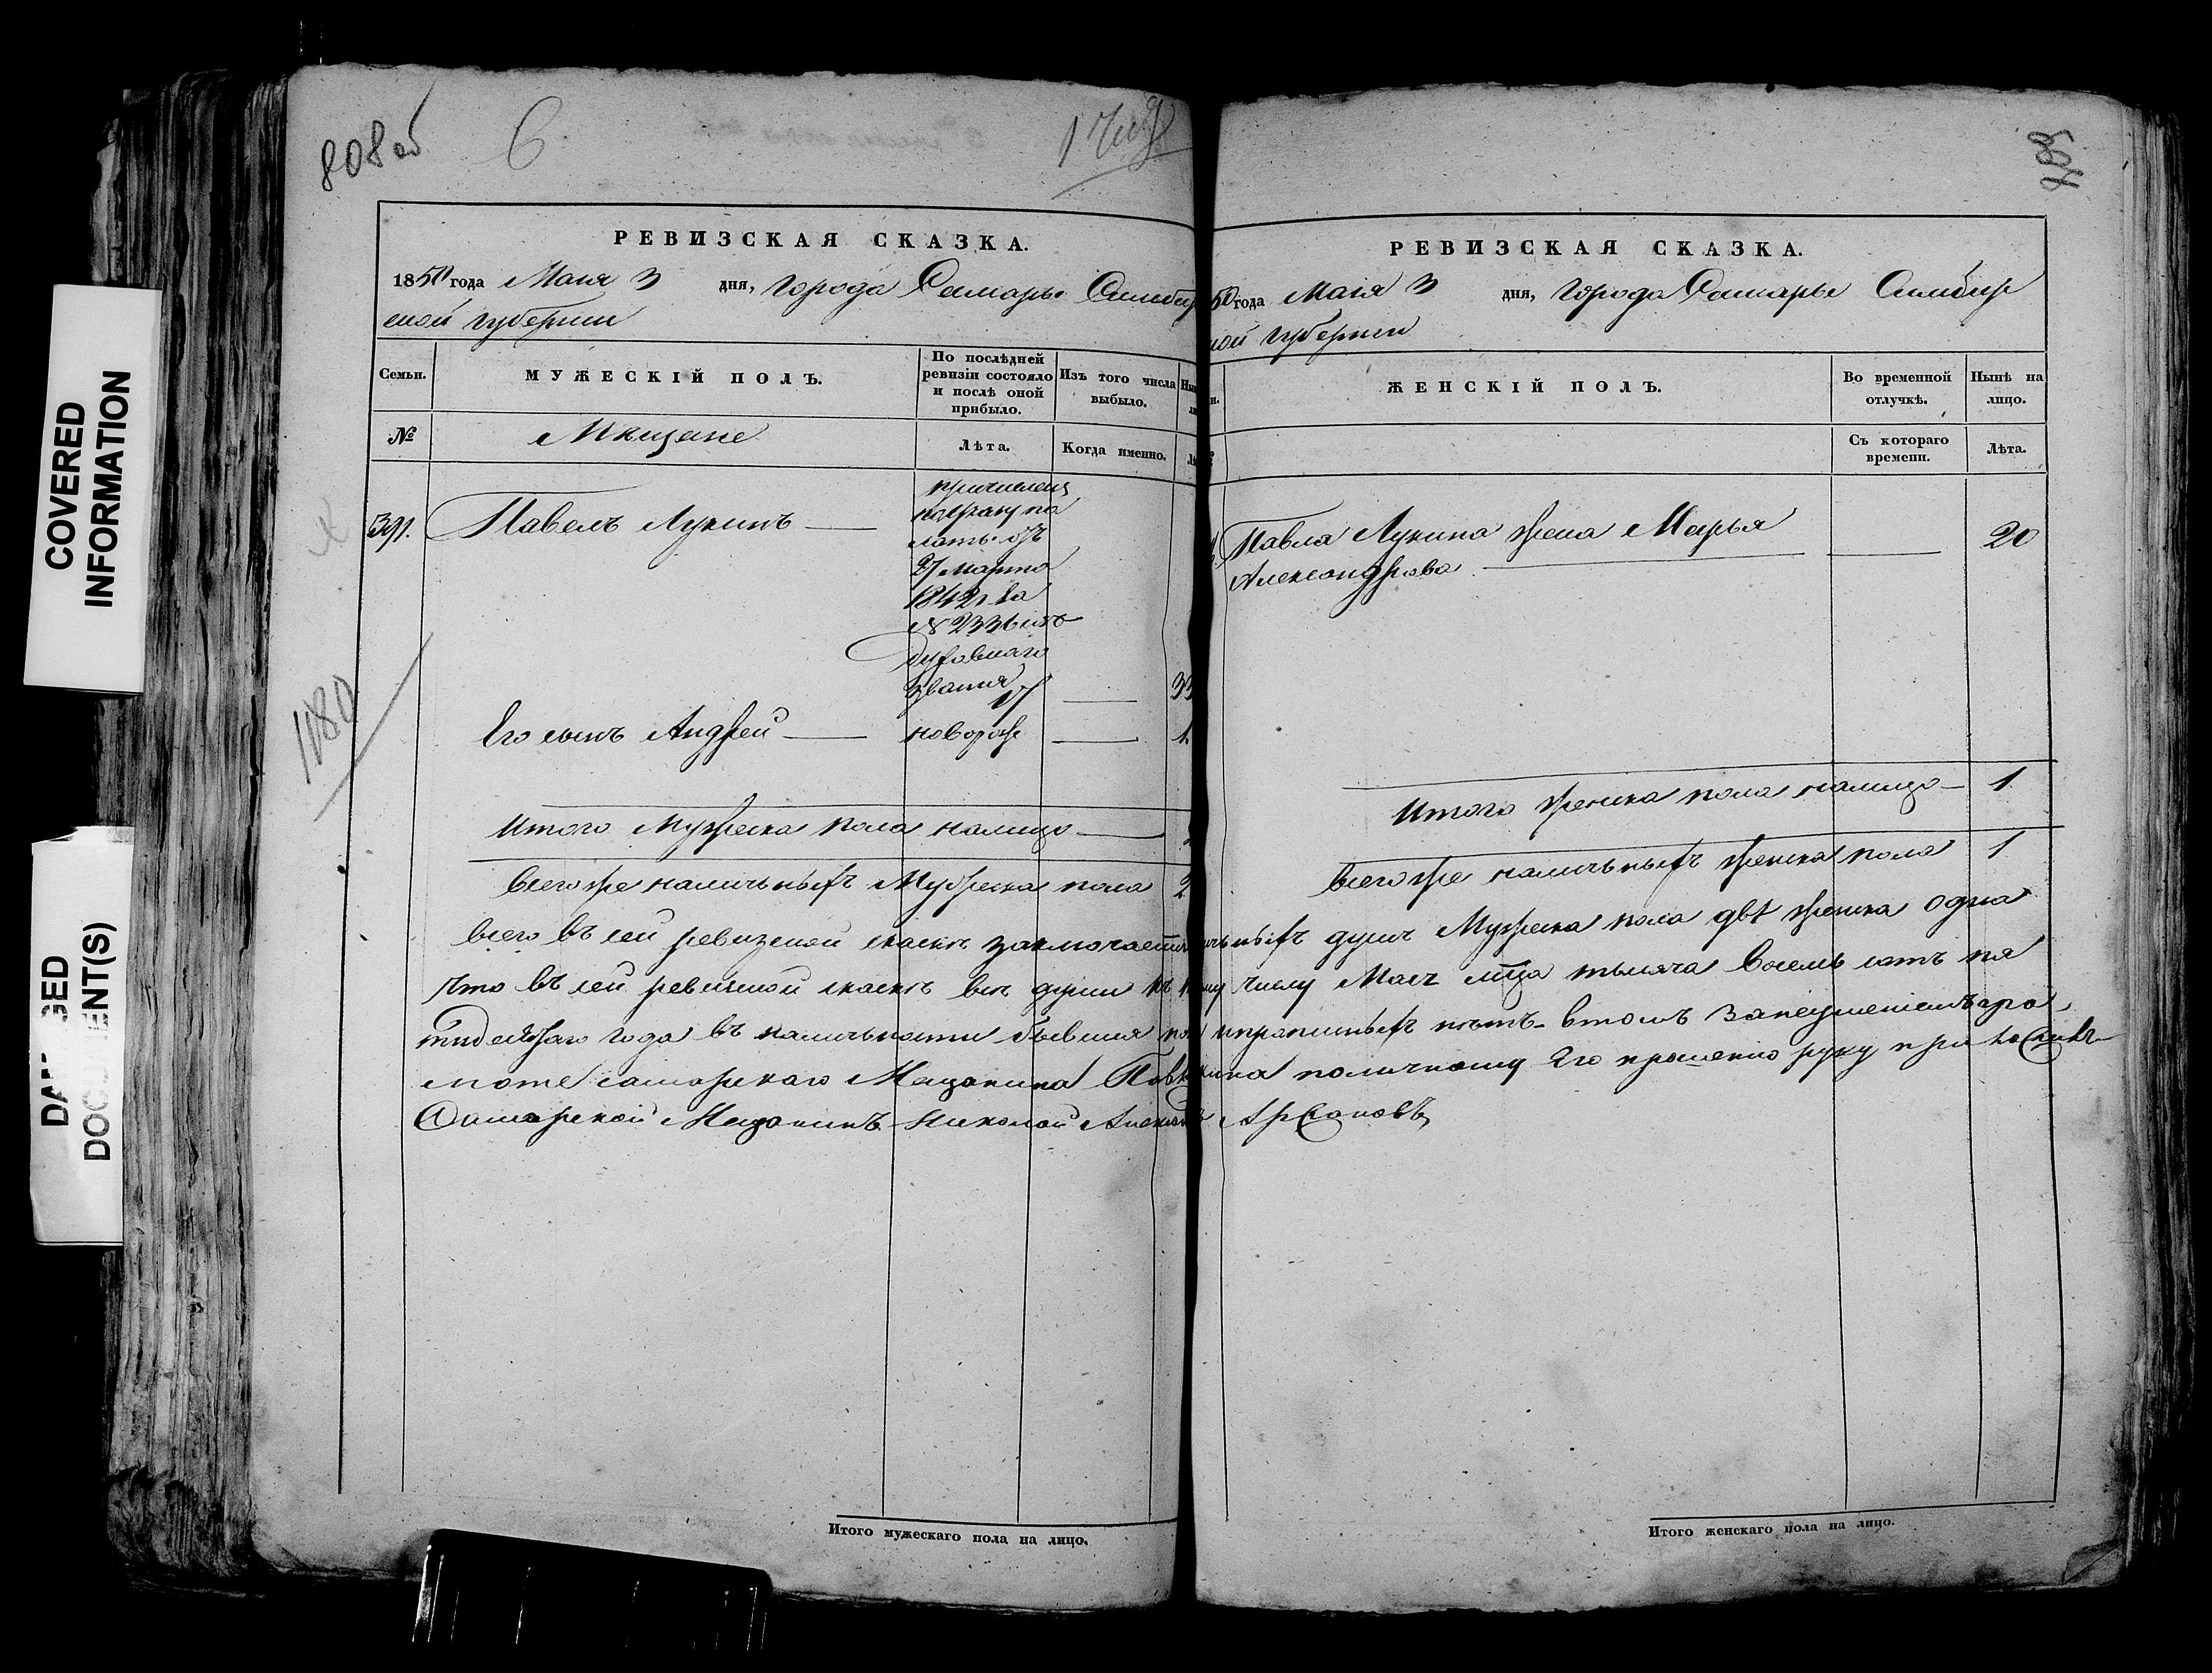 COVERED
INFORMATION
808 об
6
РЕВИЗСКАЯ СКАЗКА.
1850 года Маия 3 дня, города Самары Симбир
ской губернии
Семьи.
МУЖЕСКІЙ ПОЛЪ.
По послѣдней
ревизіи состояло
и послѣ оной
прибыло.
Изъ того числа
выбыло.
№
Мещане
Лѣта.
Когда именно.
391.
Павелъ Лукинъ
причислен
по указу па
латы отъ
27 марта
1842 г. за
№ 2336 изъ
духовнаго
звания
33
Его сынъ Андрей
новорож
1.
1180
Итого Мужеска пола налицо
Всего же наличныхъ Мужеска пола 2
РЕВИЗСКАЯ СКАЗКА.
50 года Маія 3 дня, города Самары Симбир
ской губернии
ЖЕНСКІЙ ПОЛЪ.
Во временной
отлучкѣ.
Нынѣ на
лицо.
Съ котораго
времени.
Лѣта.
Павла Лукина жена Марья 20
Александрова
Итого женска пола налицо 1
Всего же наличныхъ женска пола 1
всего въ сей ревизской скаске заключается наличныхъ душъ Мужеска пола двѣ женска одна
что въ сей ревизской скаске все души къ числу Маія мца тысяча восемь сотъ пя
тидесятаго года въ наличности бывшия прописныхъ нѣтъ в томъ за неумениемъ гра
моте самарскаго Мещанина по личному Его прошению руку приложилъ
Самарской Мещанинъ Николай Арханов
Итого мужескаго пола на лицо.
Итого женскаго пола на лицо.